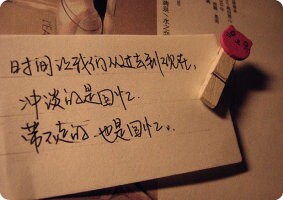 时间让我们从过去到现在,
冲淡的是回忆.
带不走的.也是回忆..